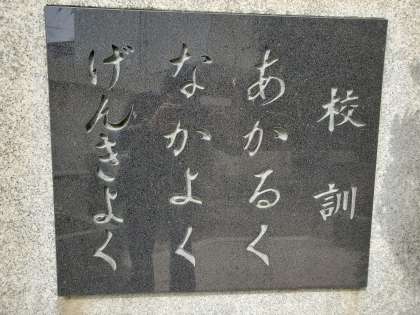 校訓
あかるく
なかよく
げんきよく